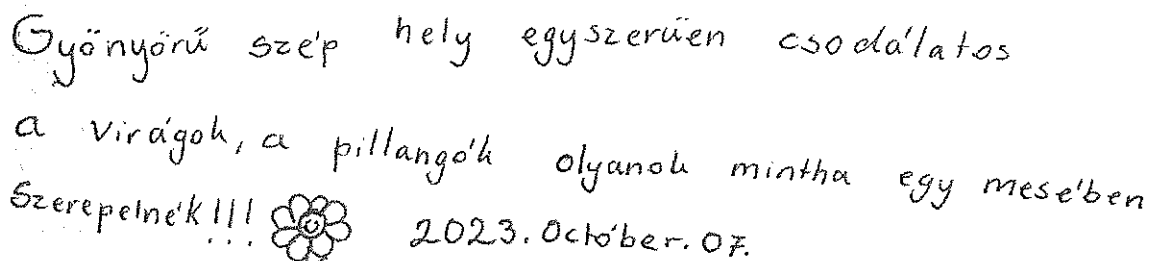 Gyönyörű szép hely egyszerüen csodálatos
a virágok, a pillangók olyanok mintha egy mesében
szerepelnék!!! 2023. Október. 07.